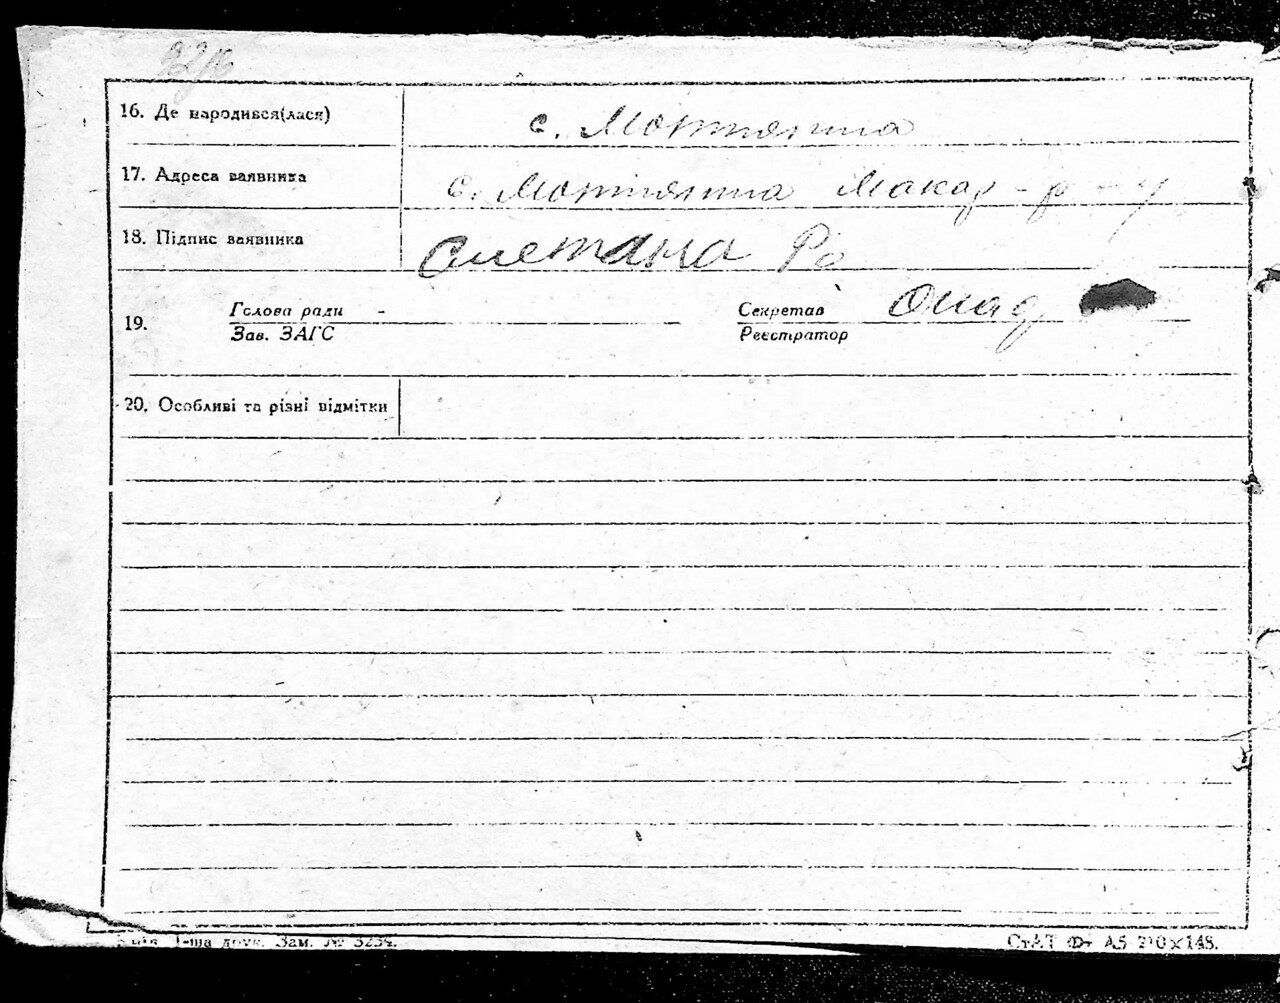 16. Де народився(лася) с. Мотижина
17. Адреса заявника с. Мотижина Макар - р - у
18. Підпис заявника Сметана Ро
19. Голова ради - Секретар
Зав. ЗАГС Реєстратор
20. Особливі та різні відмітки
1-ша друк. Зам. № 3254. СтАТ Ф- А5 210×148.